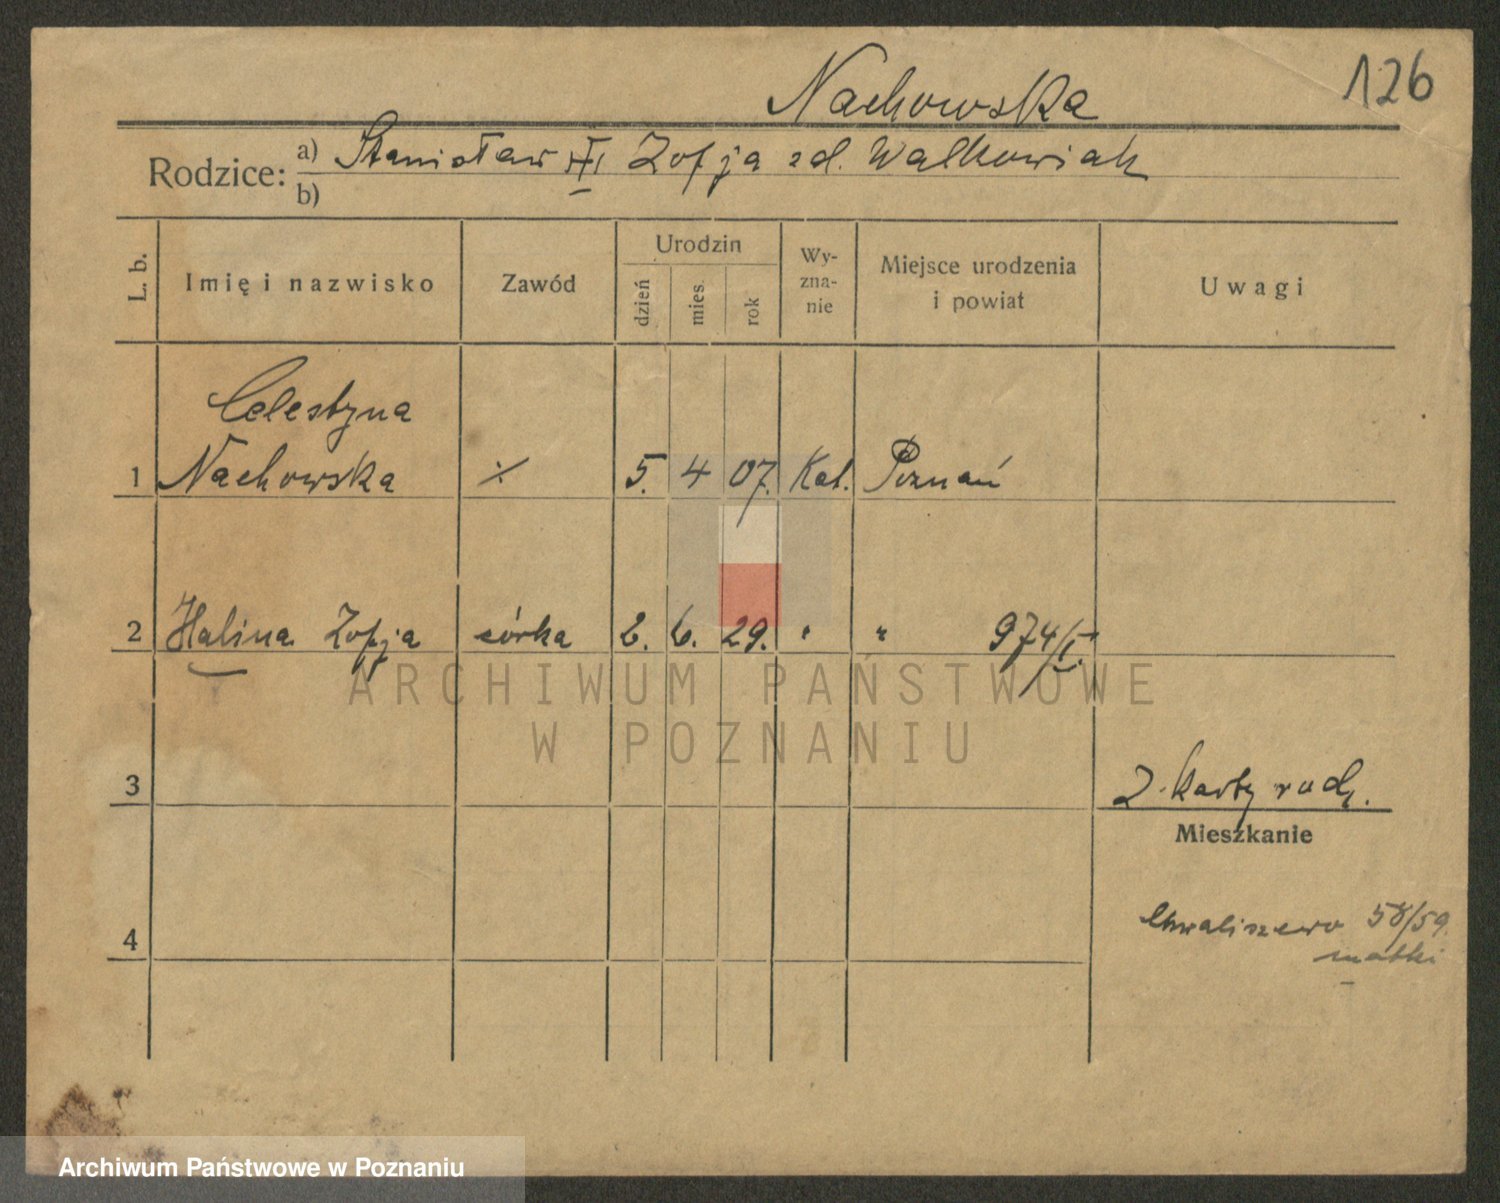 126
Nachowska
Rodzice: a) Stanisław i Zofja zd. Walkowiak
b)
L. b. Imię i nazwisko Zawód Urodzin dzień mies. rok Wyznanie Miejsce urodzenia i powiat Uwagi
Celestyna
1 Nachowska 5. 4 07. Kat. Poznań
2 Halina Zofja córka 2. 6. 29. " " 974/I.
ARCHIWUM PAŃSTWOWE
W POZNANIU
3 Z karty rodz.
Mieszkanie
Chwaliszewo 58/59.
matki
4
Archiwum Państwowe w Poznaniu